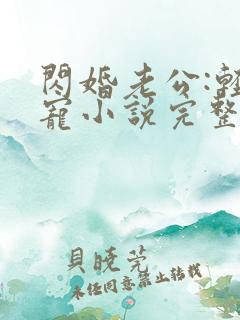 閃婚老公:輕
寵小說完整
貝曉莞
未經同意禁止轉載